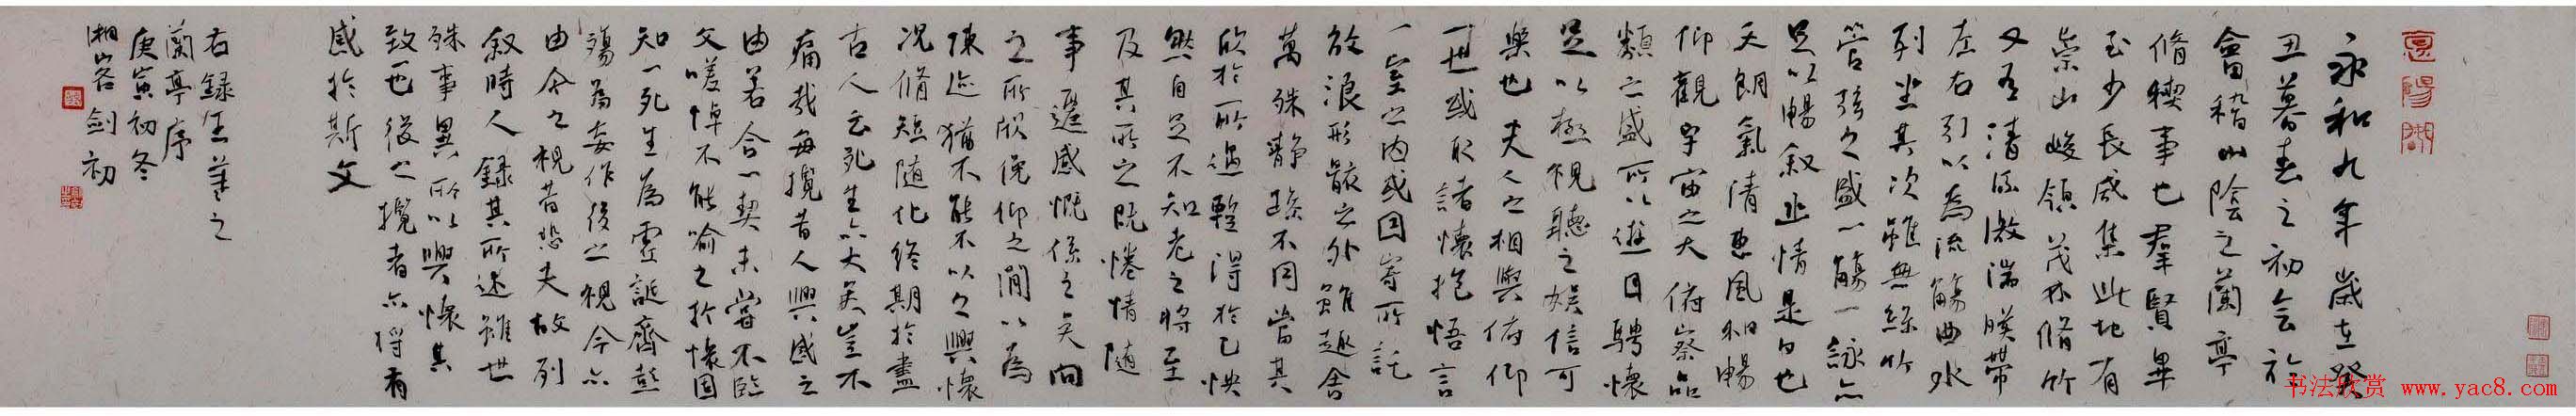 永和九年歲在癸
丑暮春之初会於
會稽山陰之蘭亭
脩禊事也羣賢畢
至少長咸集此地有
崇山峻領茂林脩竹
又有清流激湍暎帶
左右引以為流觴曲水
列坐其次雖無絲竹
管弦之盛一觴一詠亦
足以暢叙幽情是日也
天朗氣清惠風和暢
仰觀宇宙之大俯察品
類之盛所以遊目騁懷
足以極視聽之娱信可
樂也夫人之相與俯仰
一世或取諸懷抱悟言
一室之内或因寄所託
放浪形骸之外雖趣舍
萬殊静躁不同當其
欣於所遇暫得於己怏
然自足不知老之將至
及其所之既惓情随
事遷感慨係之矣向
之所欣俛仰之間以為
陳迹猶不能不以之興懷
况脩短随化終期於盡
古人云死生亦大矣豈不
痛哉每攬昔人興感之
由若合一契未嘗不臨
文嗟悼不能喻之於懷固
知一死生為虚誕齊彭
殤為妄作後之視今亦
由今之視昔悲夫故列
叙時人録其所述雖世
殊事異所以興懷其
致一也後之攬者亦將有
感於斯文
右録王羲之
蘭亭序
庚寅初冬
湘 剑初
书法欣赏 www.yac8.com